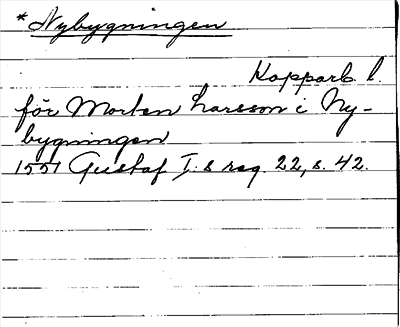 *Nybygningen
Kopparb. l.
för Morten Larsson i Ny-
bygningen
1551 Gustaf I:s reg. 22, s. 42.